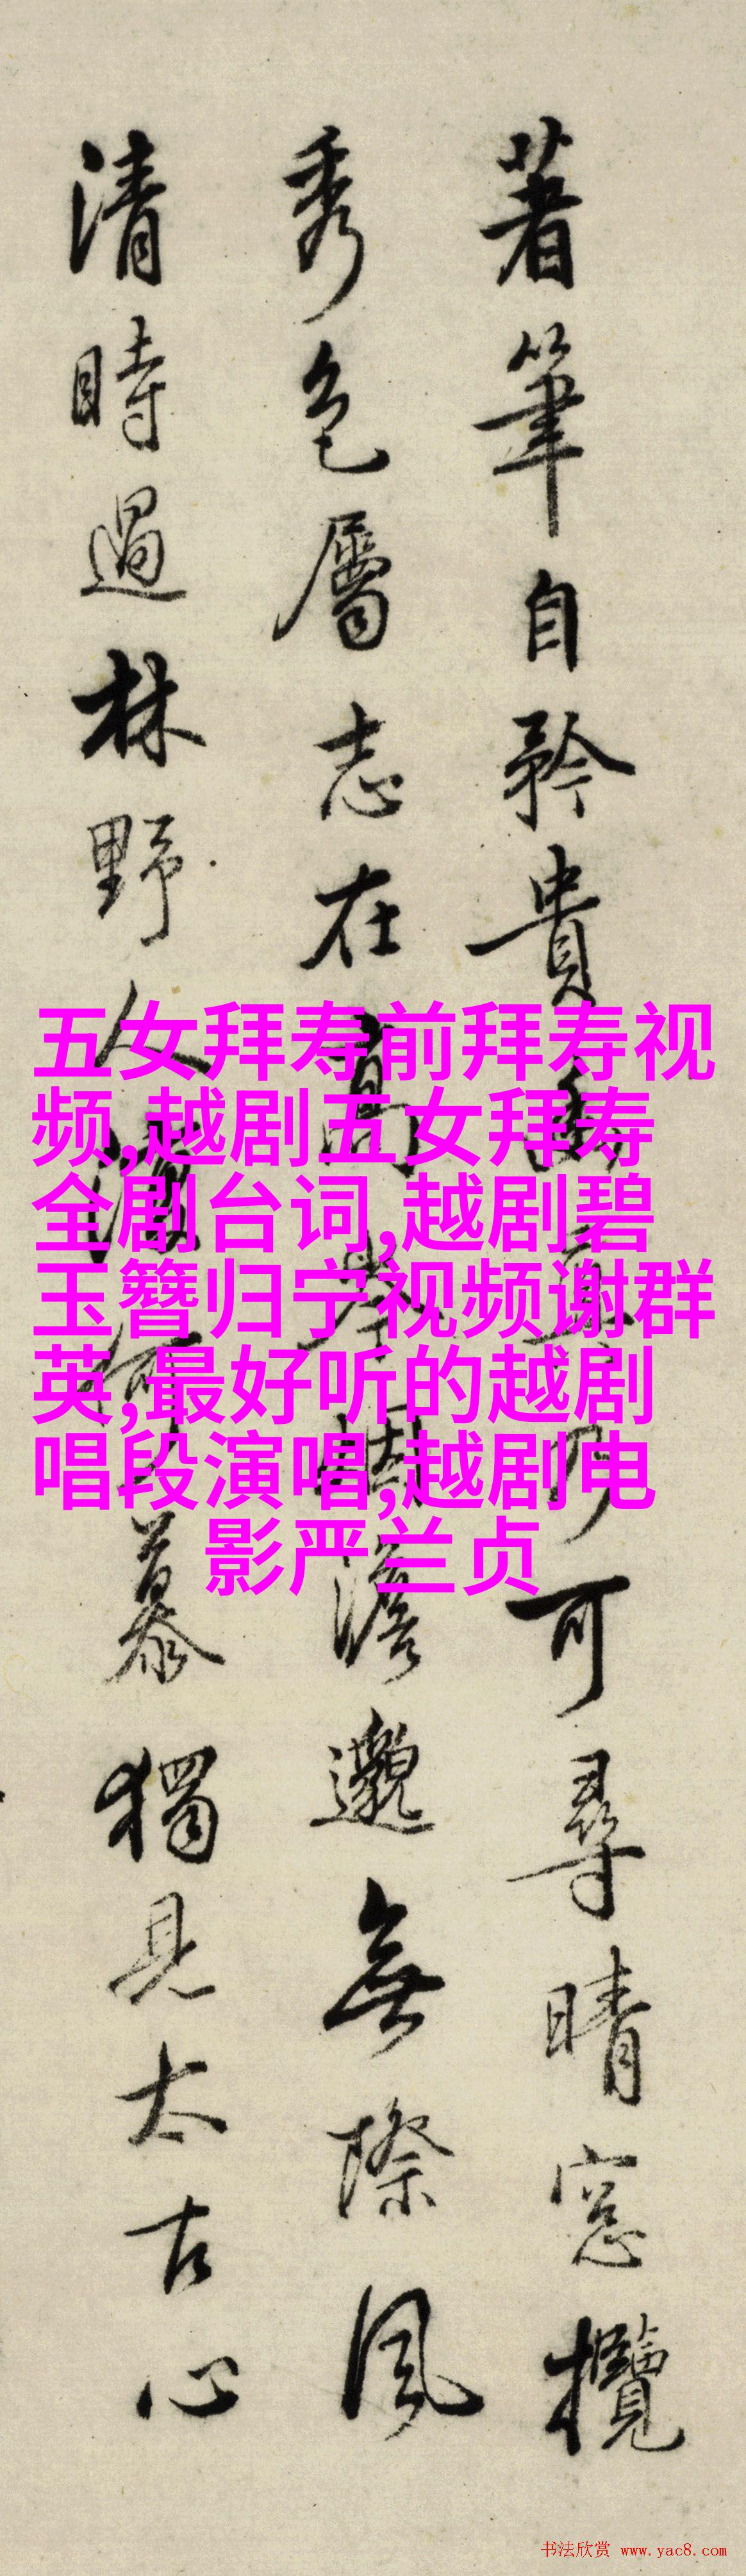 著筆自矜貴 乃可尋晴窓攬
秀色屬志在高 澹邈無際風
清時過林野人 何慕獨見太古心
五女拜寿前拜寿视
频,越剧五女拜寿
全剧台词,越剧碧
玉簪归宁视频谢群
英,最好听的越剧
唱段演唱,越剧电
影严兰贞
书法欣赏 www.yac8.com